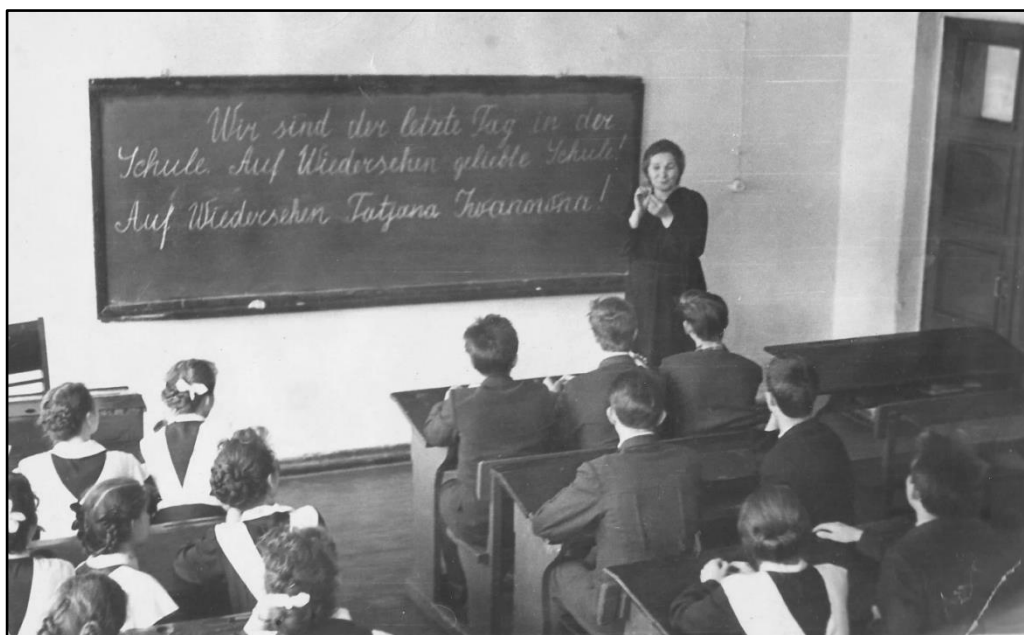 Wir sind der letzte Tag in der
Schule. Auf Wiedersehen geliebte Schule!
Auf Wiedersehen Tatjana Iwanowna!